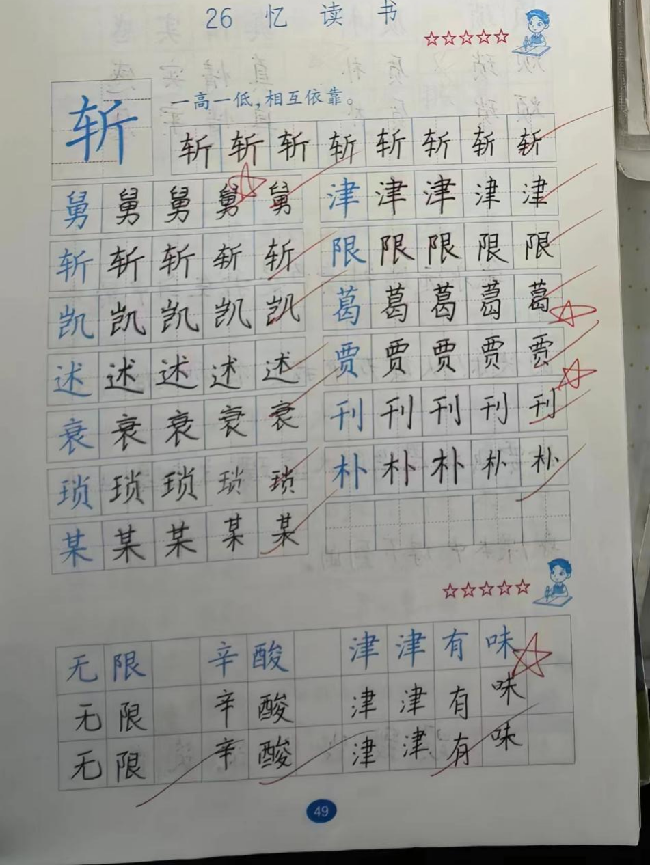 26 忆读书
☆☆☆☆☆
斩 一高一低,相互依靠。
斩 斩 斩 斩 斩 斩 斩 斩
舅 舅 舅 舅 舅
斩 斩 斩 斩 斩
凯 凯 凯 凯 凯
述 述 述 述 述
衰 衰 衰 衰 衰
琐 琐 琐 琐 琐
某 某 某 某 某
津 津 津 津 津
限 限 限 限 限
葛 葛 葛 葛 葛
贾 贾 贾 贾 贾
刊 刊 刊 刊 刊
朴 朴 朴 朴 朴
☆☆☆☆☆
无限 辛酸 津津有味
无限 辛酸 津津有味
无限 辛酸 津津有味
49